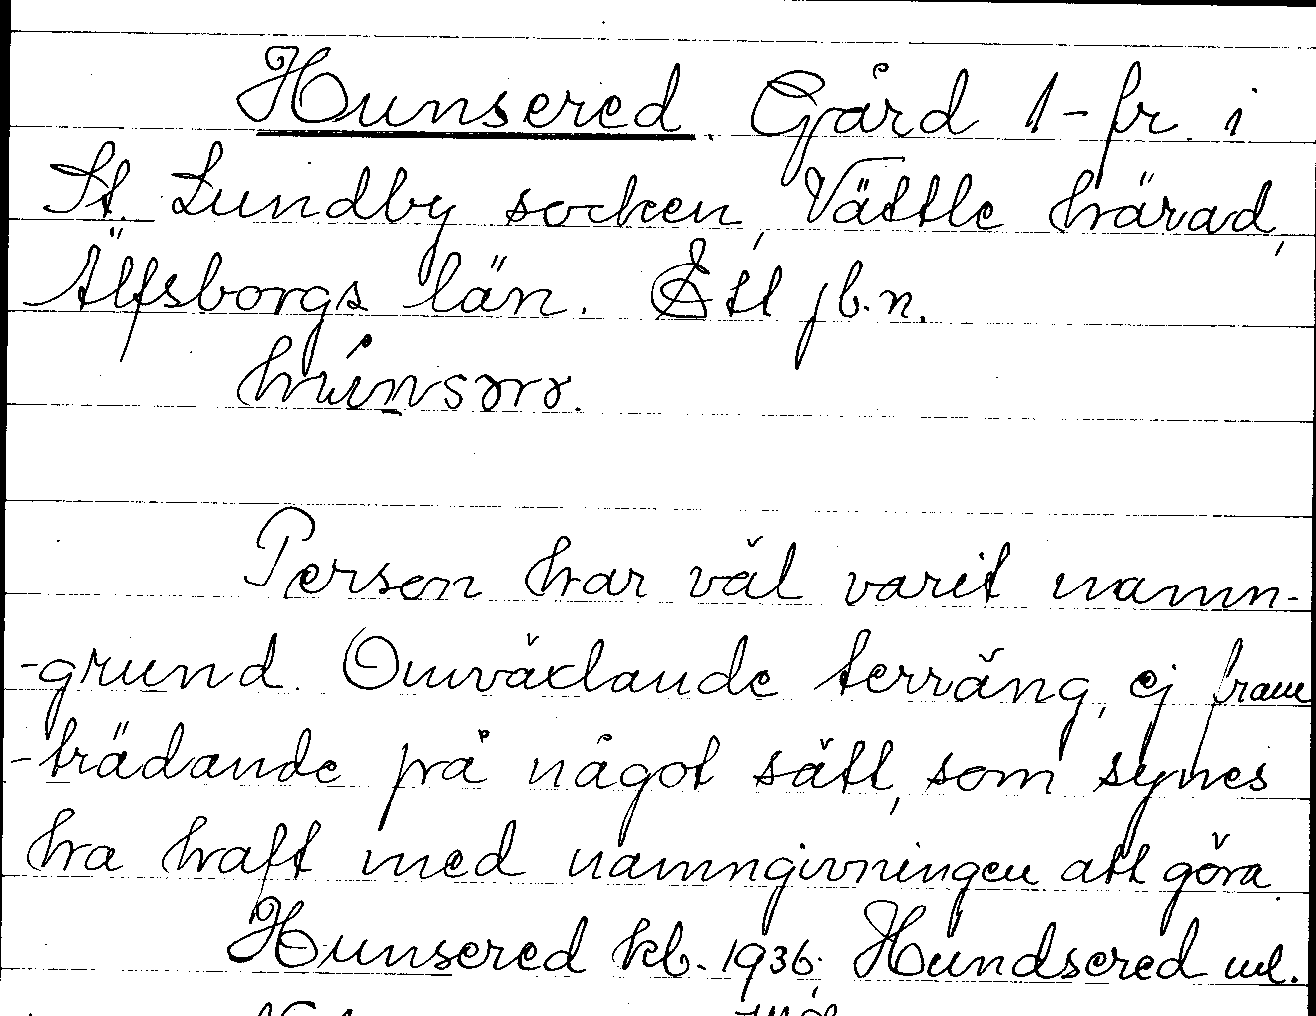 Hunsered. Gård 1-fr. i
St. Lundby socken, Vättle härad,
Älfsborgs län. Ett jb.n.
Person har väl varit namn-
-grund. Omväxlande terräng, ej fram
-trädande på något sätt, som synes
ha haft med namngivningen att göra.
Hunsered kb. 1936; Hundsered ul.